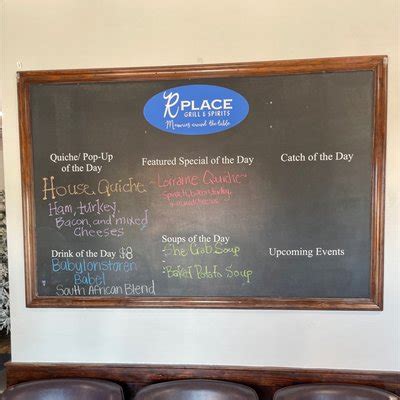 R PLACE
GRILL & SPIRITS
Memories around the table
Quiche/ Pop-Up
of the Day
House Quiche
Ham, turkey,
Bacon, and mixed
Cheeses
Featured Special of the Day
~Lorraine Quiche~
Catch of the Day
Drink of the Day $8
Babylonstoren
Babel
South African Blend
Soups of the Day
She Crab Soup
Baked Potato Soup
Upcoming Events